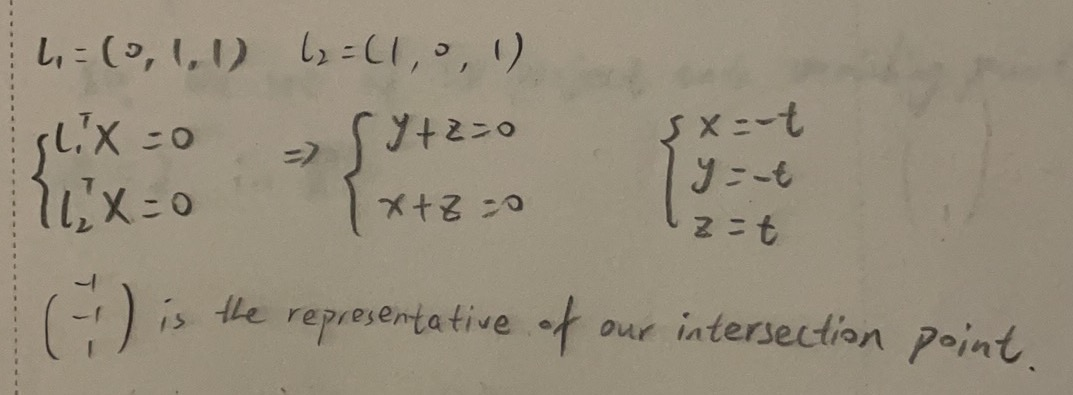 l₁=(0,1,1)  l₂=(1,0,1)
{ l₁ᵀX=0  ⇒ { y+z=0  { x=-t
y=-t
l₂ᵀX=0  x+z=0
z=t
(-1 -1 1) is the representative of our intersection point.